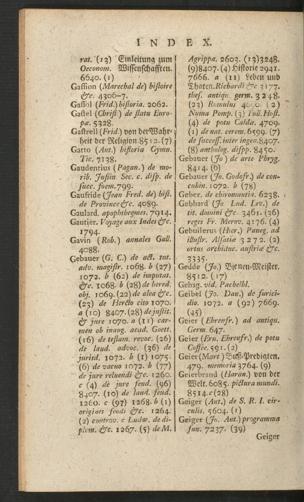 INDEX.
rat. (13) Einleitung zum
Oeconom. Wissenschafften.
6640. (1)
Gassion (Marechal de) histoire
&c. 4306-7.
Gassol (Frid.) historia. 2062.
Gastel (Christ.) de statu Euro-
pæ. 5328.
Gastrell (Frid.) von der Wahr-
heit der Religion 8512. (7)
Gatto (Ant.) historia Gymn.
Tic. 7138.
Gaudentius (Pagan.) de mo-
rib. Justin Sec. e. disp. de
succ. foem. 799.
Gaufride (Jean Fred. de) hist.
de Province &c. 4089.
Gaulard. apophthegmes. 7914.
Gautier. Voyage aux Indes &c.
1794.
Gavin (Rob.) annales Gall.
4088.
Gebauer (G. C.) de act. tut.
adv. magistr. 1068. b (27)
1072. b (62) de imputat.
&c. 1068. b (28) de hered.
obj. 1069. (22) de alea &c.
(23) de Hercto cito 1070.
a (10) 8407. (28) de justit.
& jure 1070. a (11) car-
men ob inaug. acad. Goett.
(16) de testam. revoc. (26)
de laud. advoc. (36) de
jurisd. 1072. b (1) 1075.
(6) de vacuo 1072. b (77)
de jure reluendi &c. 1260.
c (4) de jure feud. (96)
8407. (10) de laud. feud.
1260. c (97) 1268. b (1)
origines feudi &c. 1264.
(2) controv. c Ludw. de di-
plom. &c. 1267. (5) de M.
Agrippa. 2603. (13) 3248.
(9) 8407. (4) Historie 2941.
7666. a (11) Leben und
Thaten. Richardi &c 3177.
thes. antiqu. germ. 3248.
(23) Romulus
Numa Pomp. (3) Tull. Host.
(4) de potu Calide. 4709.
(1) de nat. cerem. 6599. (7)
de success. inter ingen. 8407.
(8) antholog. disp. 8450.
Gebauer (Jo) de arte Phryg.
8414. (6)
Gebauer (Jo. Godofr.) de con-
cubin. 1072. b (78)
Geber. de chiromantie. 6238.
Gebhard (Jo Lud. Lev.) de
tit. domini &c. 3461. (26)
reges Fr. Merov. 4176. (4)
Gebuilerus (Hier.) Paneg. ad
illustr. Alsatiæ 3272. (2)
ortus archiduc. austriæ &c.
3335.
Gedde (Jo.) Bienen-Meister.
8512. (17)
Gehag. vid. Pachelbl.
Geibel (Jo. Dan.) de furici-
dio. 1072. a (92) 7669.
(45)
Geier (Ehrenfr.) ad antiqu.
Germ. 647.
Geier (Ern. Ehrenfr.) de potu
Coffee. 591. (2)
Geier (Mart.) Buß-Predigten.
479. memoria 3764. (9)
Geierbrand (Haron.) von der
Welt. 6085. pictura mundi.
8514. c (28)
Geiger (Ant.) de S. R. I. cir-
culis. 5604. (1)
Geiger (Jo. Ant.) programma
fun. 7237. (39)
Geiger